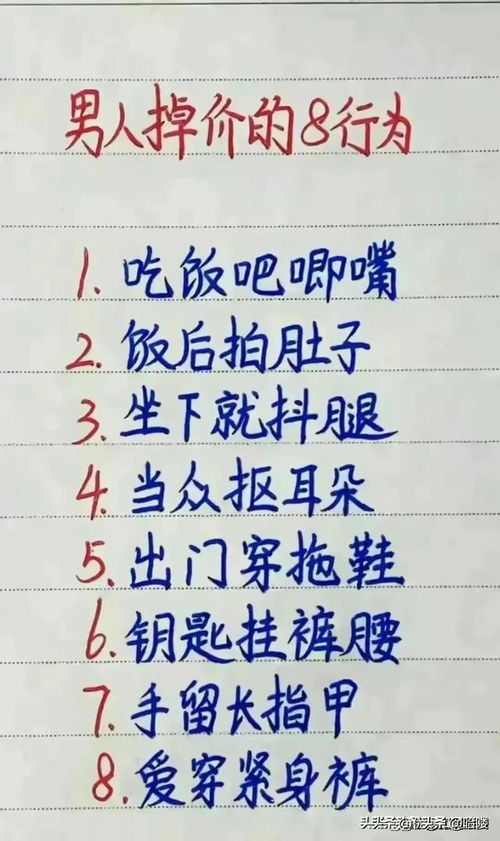 男人掉价的8行为
1. 吃饭吧唧嘴
2. 饭后拍肚子
3. 坐下就抖腿
4. 当众抠耳朵
5. 出门穿拖鞋
6. 钥匙挂裤腰
7. 手留长指甲
8. 爱穿紧身裤